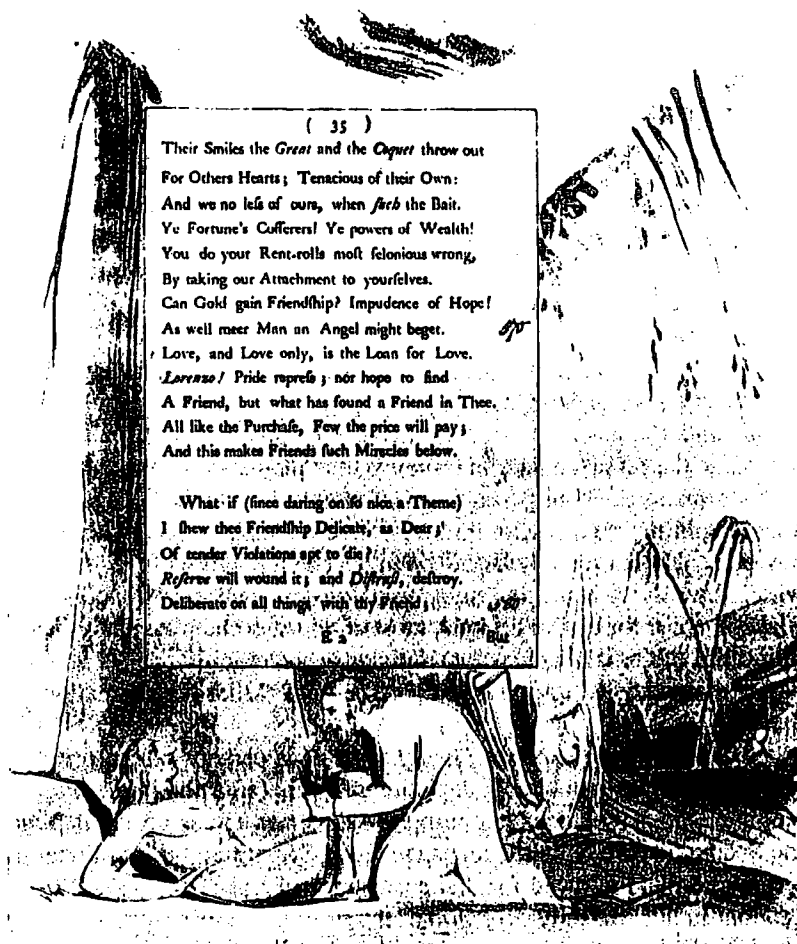 ( 35 )
Their Smiles the Great and the Coquet throw out
For Others Hearts; Tenacious of their Own:
And we no leſs of ours, when ſuch the Bait.
Ye Fortune's Cofferers! Ye powers of Wealth!
You do your Rent-rolls moſt felonious wrong,
By taking our Attachment to yourſelves.
Can Gold gain Friendſhip? Impudence of Hope!
As well meer Man an Angel might beget.
570
Love, and Love only, is the Loan for Love.
Lorenzo! Pride repreſs; nor hope to find
A Friend, but what has found a Friend in Thee.
All like the Purchaſe, Few the price will pay;
And this makes Friends ſuch Miracles below.
What if (ſince daring on ſo nice a Theme)
I ſhew thee Friendſhip Delicate, as Dear;
Of tender Violations apt to die?
Reſerve will wound it; and Diſtruſt, deſtroy.
Deliberate on all things with thy Friend;
E 2
But